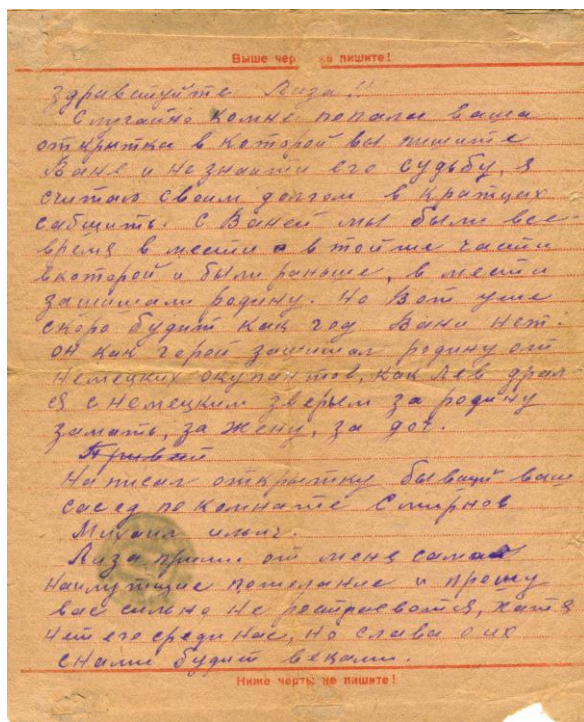 Выше черты не пишите!
Здравствуйте Лиза!!
Случайно комне попала ваша
открытка в которой вы пишите
Ване и незнаити его судьбу, я
считаю своим долгом в кратцах
сабщить. С Ваней мы были все
время в мести в той же части
вкоторой и были раньше, в мести
защишали родину. Но Вот уже
скоро будит как год Вани нет.
он как герой защишал родину от
немецких окупантов, как лев драл
ся с немецким зверьем за родину
замать, за жену, за доч.
Привет
Написал открытку бывший ваш
сасед по комнате Смирнов
Михаил ильич.
Лиза прими от меня самое
наилутшие пожелание и прошу
вас сильно не растраеватся, хатя
нет его среди нас, но слава о их
снами будит веками.
Ниже черты не пишите!